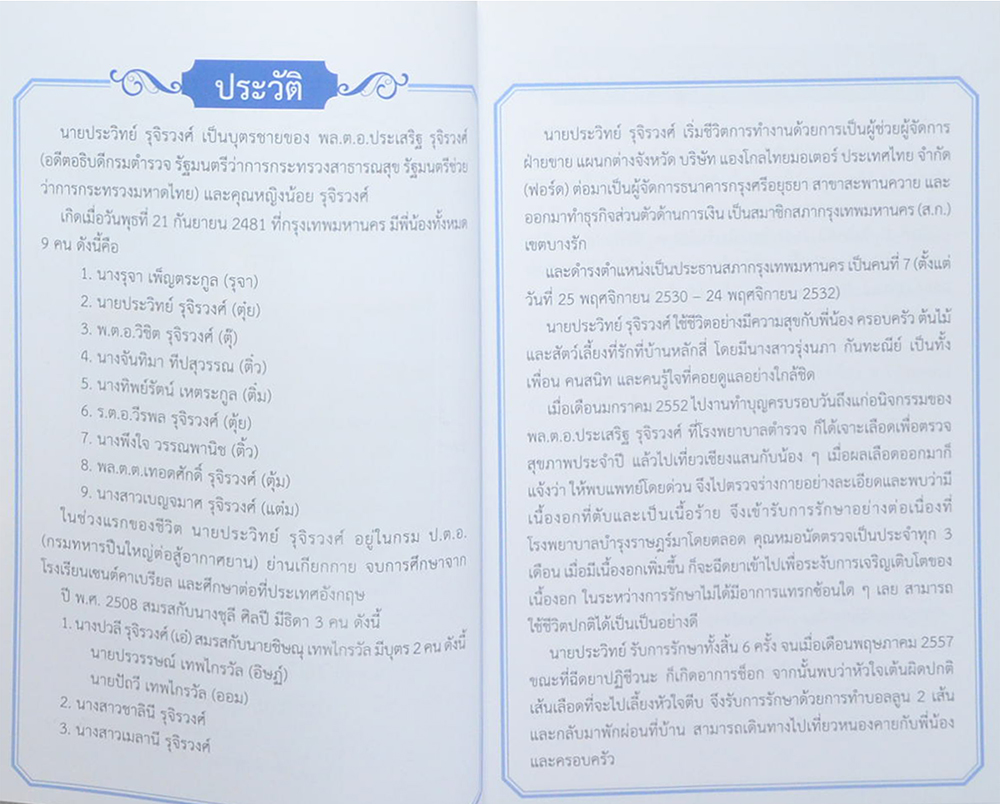 ประวัติ
นายประวิทย์ รุจิรวงศ์ เป็นบุตรชายของ พล.ต.อ.ประเสริฐ รุจิรวงศ์
(อดีตอธิบดีกรมตำรวจ รัฐมนตรีว่าการกระทรวงสาธารณสุข รัฐมนตรีช่วย
ว่าการกระทรวงมหาดไทย) และคุณหญิงน้อย รุจิรวงศ์
เกิดเมื่อวันพุธที่ 21 กันยายน 2481 ที่กรุงเทพมหานคร มีพี่น้องทั้งหมด
9 คน ดังนี้คือ
1. นางรุจา เพ็ญตระกูล (รุจา)
2. นายประวิทย์ รุจิรวงศ์ (ตุ๋ย)
3. พ.ต.อ.วิชิต รุจิรวงศ์ (ตุ๊)
4. นางจันทิมา ทีปสุวรรณ (ติ๋ว)
5. นางทิพย์รัตน์ เหตระกูล (ติ๋ม)
6. ร.ต.อ.วีรพล รุจิรวงศ์ (ตุ้ย)
7. นางพึงใจ วรรณพานิช (ติ้ว)
8. พล.ต.ต.เทอดศักดิ์ รุจิรวงศ์ (ตุ้ม)
9. นางสาวเบญจมาศ รุจิรวงศ์ (แต๋ม)
ในช่วงแรกของชีวิต นายประวิทย์ รุจิรวงศ์ อยู่ในกรม ป.ต.อ.
(กรมทหารปืนใหญ่ต่อสู้อากาศยาน) ย่านเกียกกาย จบการศึกษาจาก
โรงเรียนเซนต์คาเบรียล และศึกษาต่อที่ประเทศอังกฤษ
ปี พ.ศ. 2508 สมรสกับนางชุลี ศิลปี มีธิดา 3 คน ดังนี้
1. นางปวลี รุจิรวงศ์ (เอ๋) สมรสกับนายชิษณุ เทพไกรวัล มีบุตร 2 คน ดังนี้
นายปรวรรษณ์ เทพไกรวัล (อิษฎ์)
นายปัถวี เทพไกรวัล (ออม)
2. นางสาวชาลินี รุจิรวงศ์
3. นางสาวเมลานี รุจิรวงศ์
นายประวิทย์ รุจิรวงศ์ เริ่มชีวิตการทำงานด้วยการเป็นผู้ช่วยผู้จัดการ
ฝ่ายขาย แผนกต่างจังหวัด บริษัท แองโกลไทยมอเตอร์ ประเทศไทย จำกัด
(ฟอร์ด) ต่อมาเป็นผู้จัดการธนาคารกรุงศรีอยุธยา สาขาสะพานควาย และ
ออกมาทำธุรกิจส่วนตัวด้านการเงิน เป็นสมาชิกสภากรุงเทพมหานคร (ส.ก.)
เขตบางรัก
และดำรงตำแหน่งเป็นประธานสภากรุงเทพมหานคร เป็นคนที่ 7 (ตั้งแต่
วันที่ 25 พฤศจิกายน 2530 – 24 พฤศจิกายน 2532)
นายประวิทย์ รุจิรวงศ์ ใช้ชีวิตอย่างมีความสุขกับพี่น้อง ครอบครัว ต้นไม้
และสัตว์เลี้ยงที่รักที่บ้านหลักสี่ โดยมีนางสาวรุ่งนภา กันทะณีย์ เป็นทั้ง
เพื่อน คนสนิท และคนรู้ใจที่คอยดูแลอย่างใกล้ชิด
เมื่อเดือนมกราคม 2552 ไปงานทำบุญครบรอบวันถึงแก่อนิจกรรมของ
พล.ต.อ.ประเสริฐ รุจิรวงศ์ ที่โรงพยาบาลตำรวจ ก็ได้เจาะเลือดเพื่อตรวจ
สุขภาพประจำปี แล้วไปเที่ยวเชียงแสนกับน้อง ๆ เมื่อผลเลือดออกมาก็
แจ้งว่า ให้พบแพทย์โดยด่วน จึงไปตรวจร่างกายอย่างละเอียดและพบว่ามี
เนื้องอกที่ตับและเป็นเนื้อร้าย จึงเข้ารับการรักษาอย่างต่อเนื่องที่
โรงพยาบาลบำรุงราษฎร์มาโดยตลอด คุณหมอนัดตรวจเป็นประจำทุก 3
เดือน เมื่อมีเนื้องอกเพิ่มขึ้น ก็จะฉีดยาเข้าไปเพื่อระงับการเจริญเติบโตของ
เนื้องอก ในระหว่างการรักษาไม่ได้มีอาการแทรกซ้อนใด ๆ เลย สามารถ
ใช้ชีวิตปกติได้เป็นเป็นอย่างดี
นายประวิทย์ รับการรักษาทั้งสิ้น 6 ครั้ง จนเมื่อเดือนพฤษภาคม 2557
ขณะที่ฉีดยาปฏิชีวนะ ก็เกิดอาการช็อก จากนั้นพบว่าหัวใจเต้นผิดปกติ
เส้นเลือดที่จะไปเลี้ยงหัวใจตีบ จึงรับการรักษาด้วยการทำบอลลูน 2 เส้น
และกลับมาพักผ่อนที่บ้าน สามารถเดินทางไปเที่ยวหนองคายกับพี่น้อง
และครอบครัว